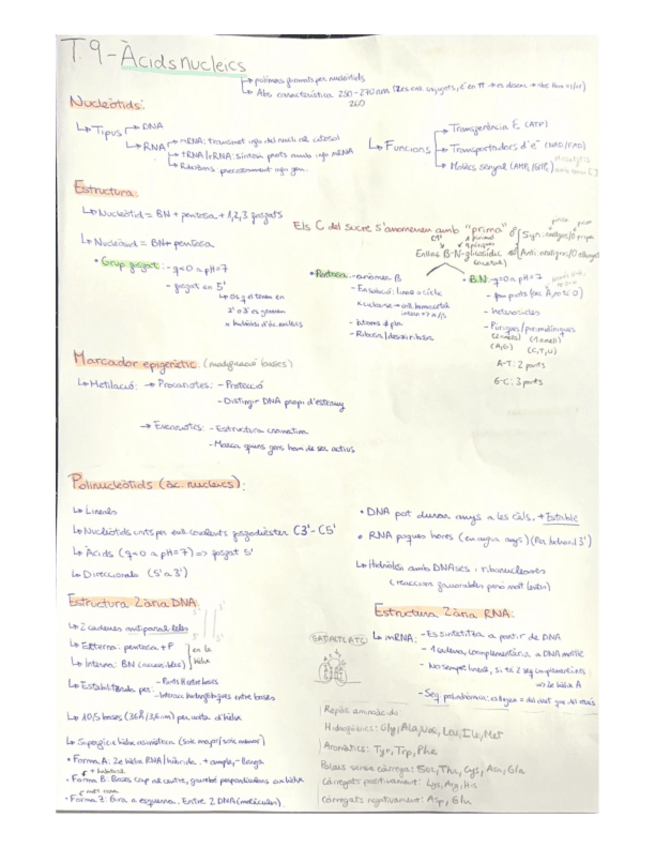 T.9 - Àcids nucleics
↳ polímers formats per nucleòtids
↳ Abs característica 250-270nm
260
Nucleòtids:
↳ Tipus
DNA
RNA
mRNA: transmet info del nucli al citosol
tRNA/rRNA: síntesi prots amb info mRNA
Ribozims: processament info gen.
↳ Funcions
Transferència E (ATP)
Transportadors d'e⁻ (NAD/FAD)
Molècs senyal
Estructura:
↳ Nucleòtid = BN + pentosa + 1,2,3 fosfats
↳ Nucleòsid = BN + pentosa
• Grup fosfat: - q<0 a pH=7
- fosfat en 5'
Els C del sucre s'anomenen amb "prima"
Enllaç β-N-glicosídic
Syn:
Anti:
• Pentosa: - anòmer β
- En solució: lineal ⇌ cicle
- Ribosa/desoxiribosa
• BN: q=0 a pH=7
- Heterocicles
- Púriques/pirimidíniques
(2 anells) (1 anell)
(A,G) (C,T,U)
A-T: 2 ponts
G-C: 3 ponts
Marcador epigenètic: (modificació bases)
↳ Metilació: → Procariotes: - Protecció
- Distingir DNA propi d'estrany
→ Eucariotes: - Estructura cromatina
- Marca quins gens han de ser actius
Polinucleòtids (àc. nucleics):
↳ Lineals
↳ Nucleòtids units per enll covalents fosfodièster C3'-C5'
↳ Àcids (q<0 a pH=7) => fosfat 5'
↳ Direccionals (5' a 3')
• DNA pot durar anys a les cèls. + Estable
• RNA poques hores (en aigua anys)
↳ Hidròlisi amb DNAses i ribonucleases
(reaccions favorables però molt lentes)
Estructura 2ària DNA:
↳ 2 cadenes antiparal·leles
↳ Externa: pentosa + P
↳ Interna: BN
en la hèlix
↳ Estabilitzada per: - Ponts H entre bases
- Interacc hidrofòbiques entre bases
↳ 10,5 bases (36Å/3,6nm) per volta d'hèlix
↳ Superfície hèlix asimètrica (solc major/solc menor)
• Forma A: 2e hèlix RNA/híbrids. + ampla, - llarga
+ habitual
• Forma B: Bases cap al centre, gairebé perpendiculars a hèlix
• Forma Z: Gira a esquerra. Entre 2 DNA (molècules).
Estructura 2ària RNA:
↳ mRNA: - Es sintetitza a partir de DNA
- 1 cadena, complementària a DNA motlle
- No sempre lineal, si té 2 seq complementàries
=> 2e hèlix A
- Seq. palindròmica: esllegeix = del dret que del revés
Repàs aminoàcids:
Hidrofòbics: Gly, Ala, Val, Leu, Ile, Met
Aromàtics: Tyr, Trp, Phe
Polars sense càrrega: Ser, Thr, Cys, Asn, Gln
Carregats positivament: Lys, Arg, His
Carregats negativament: Asp, Glu